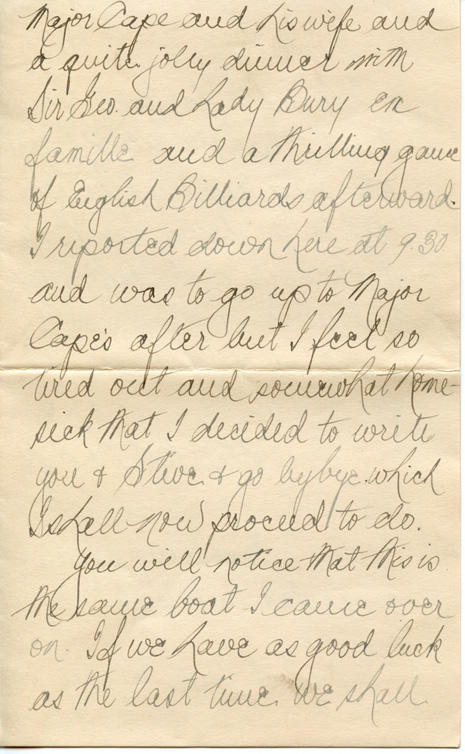 Major Cape and his wife and
a quite jolly dinner with
Sir Geo. and Lady Bury en
famille and a thrilling game
of English Billiards afterward.
I reported down here at 9.30
and was to go up to Major
Cape's after but I feel so
tired out and somewhat home-
sick that I decided to write
you & Steve & go bybye which
I shall now proceed to do.
You will notice that this is
the same boat I came over
on. If we have as good luck
as the last time we shall